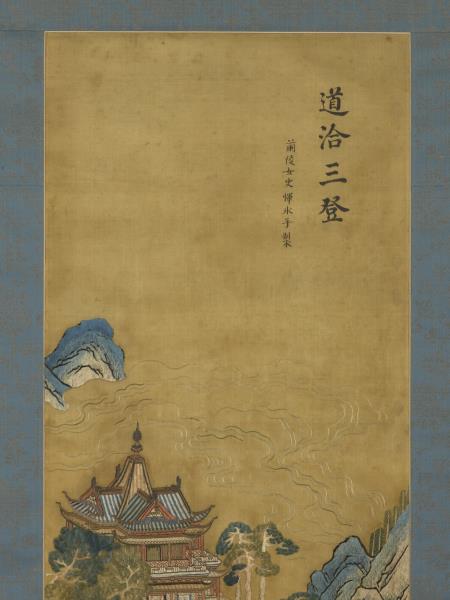 道洽三登
蘭陵女史惲氷手製